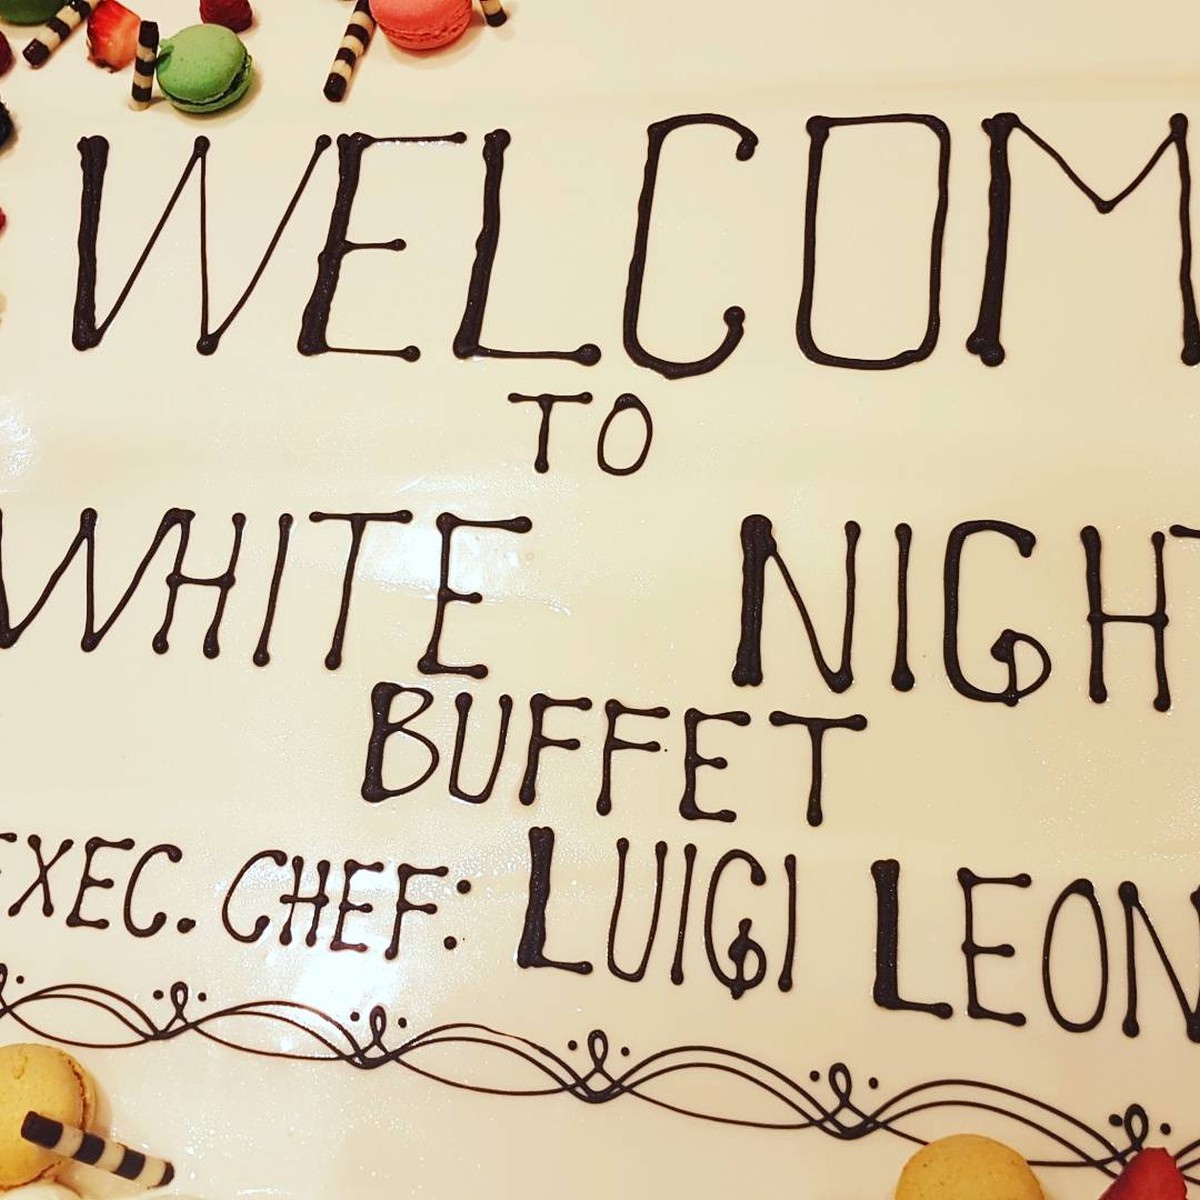 WELCOM
TO
WHITE NIGHT
BUFFET
EXEC. CHEF: LUIGI LEON